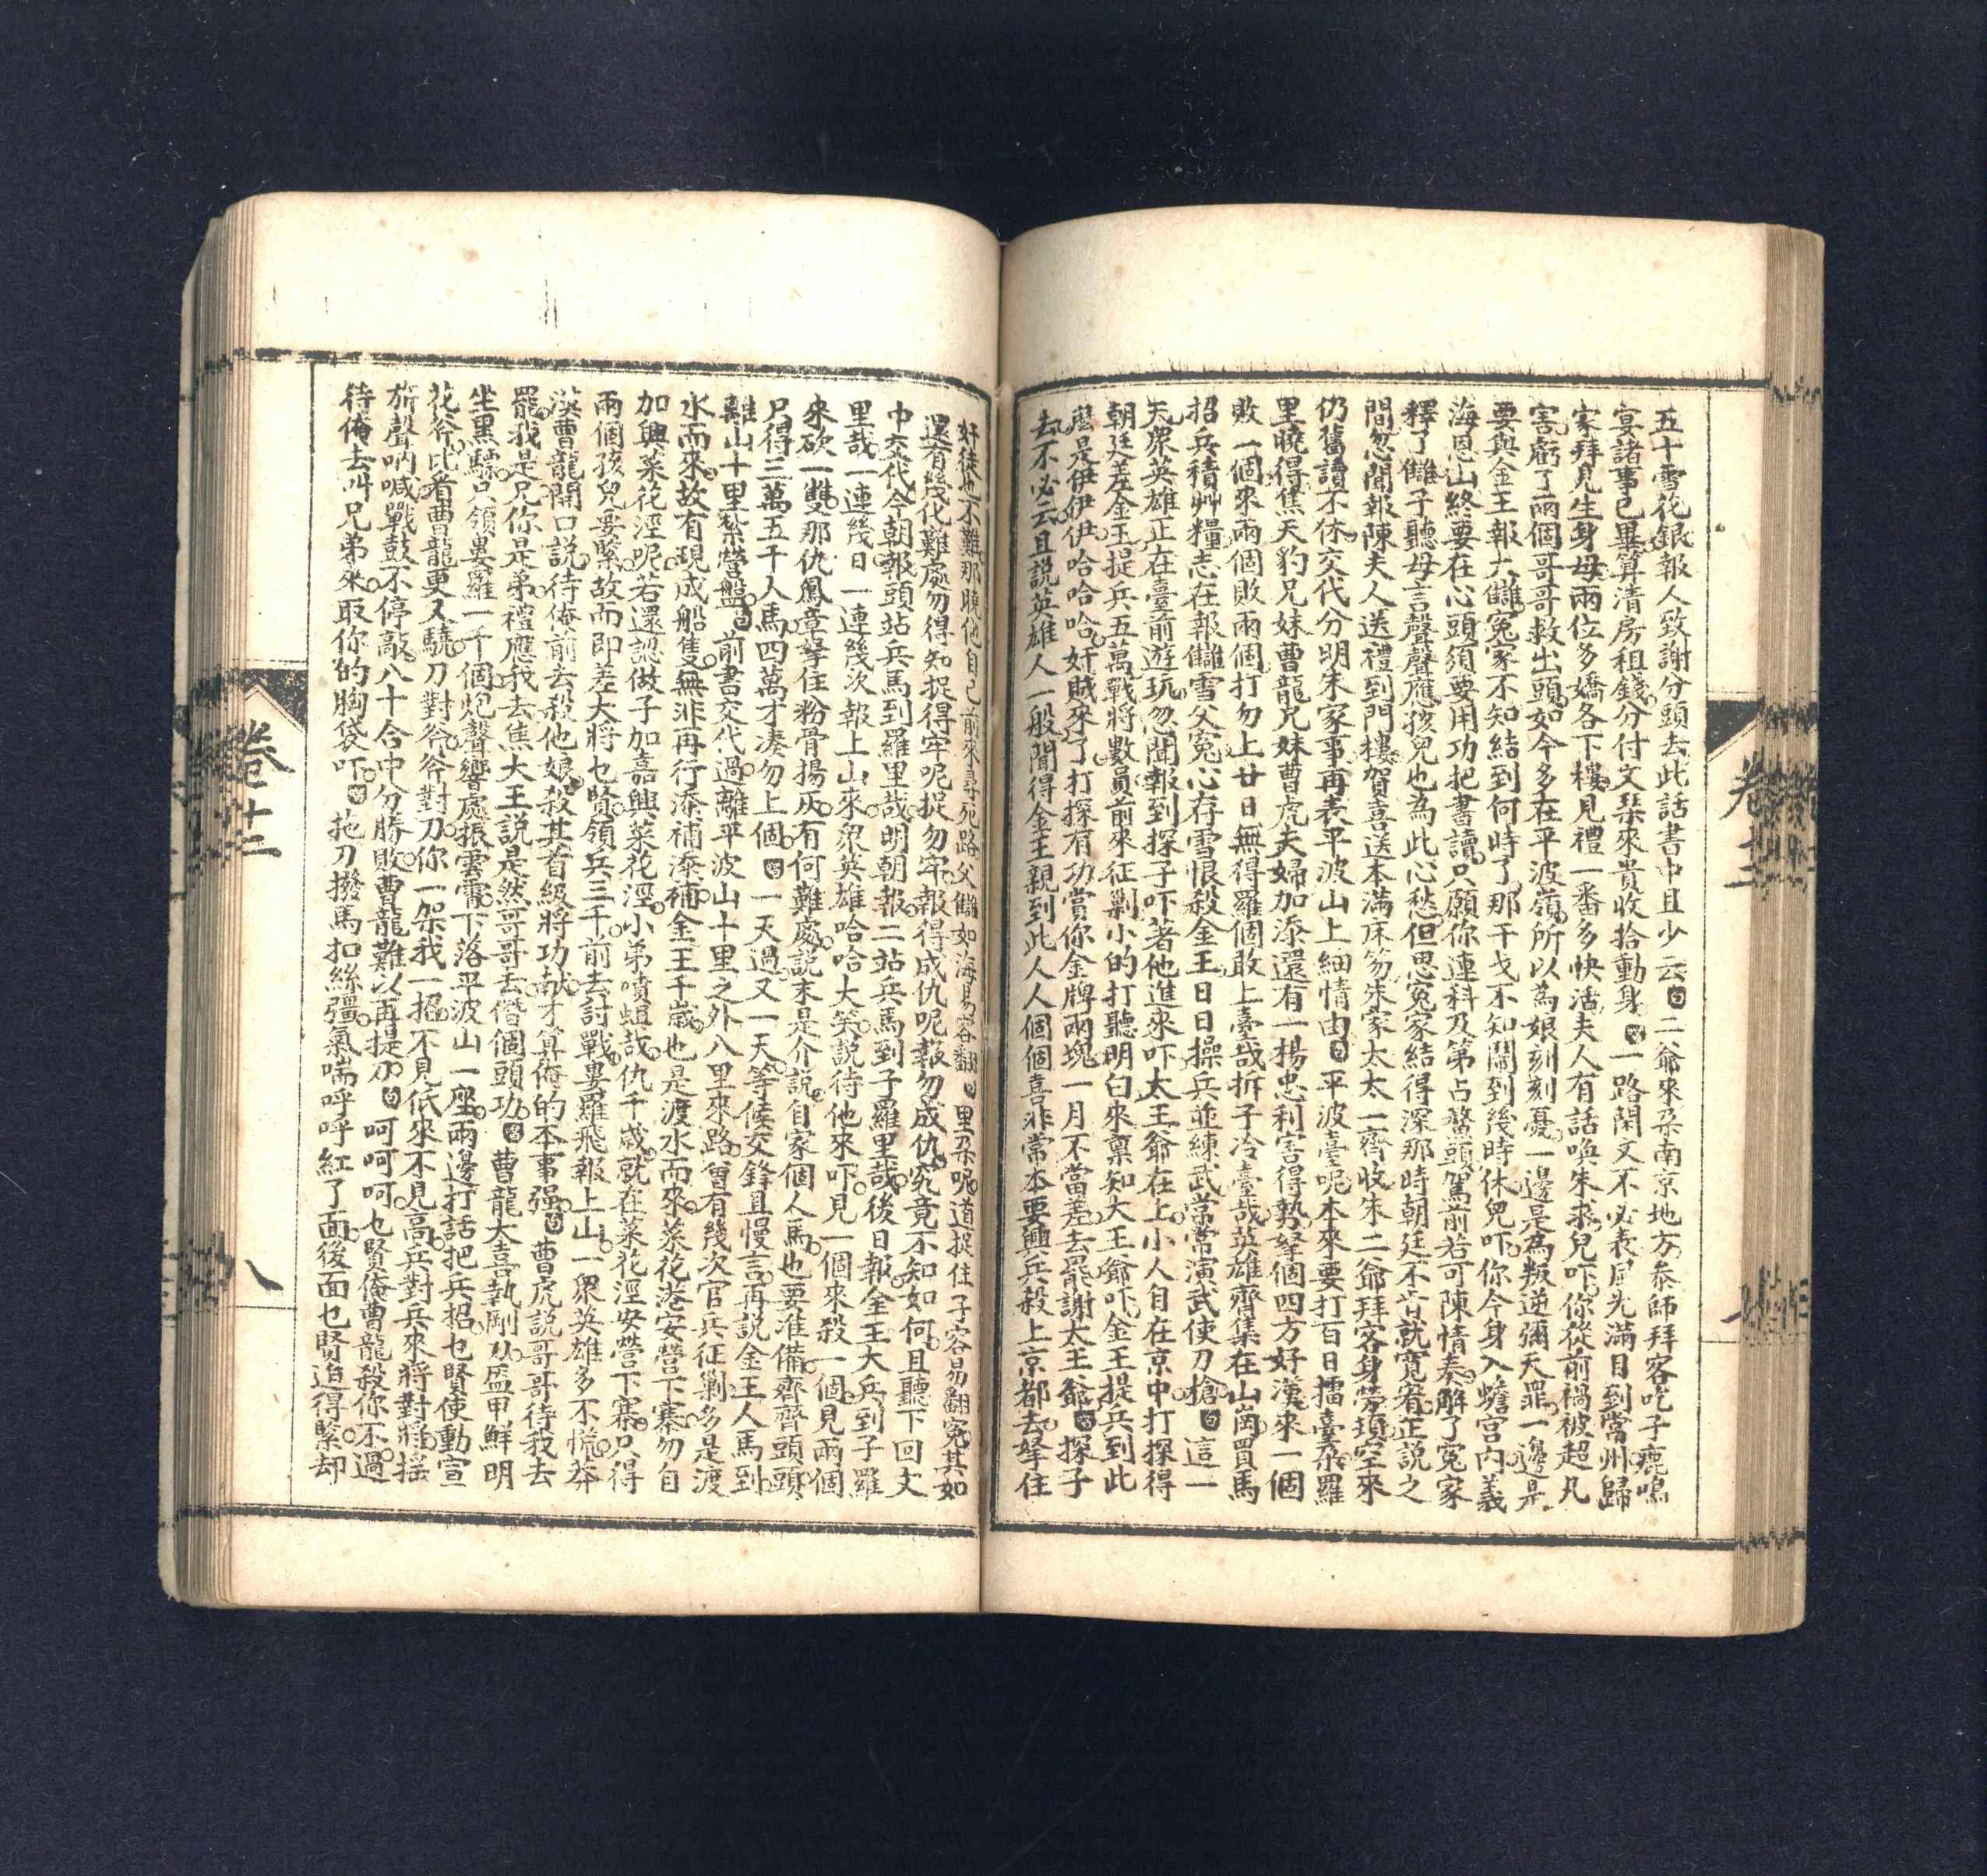 五十雪花銀報人致謝分頭去此話書中且少云白二爺來朶南京地方叅師拜客吃子鹿鳴
宴諸事已畢算清房租錢分付文琹來貴收拾動身唱一路閑文不必表風光滿目到常州歸
家拜見生身母兩位多嬌各下樓見禮一番多快活夫人有話喚朱求兒吓你從前禍被超凡
害虧了兩個哥哥救出頭如今多在平波嶺所以為娘刻刻憂一邊是為叛逆彌天罪一邊是
要與金王報大讎寃家不知結到何時了那干戈不知鬧到後時休兒吓你今身入蟾宮內義
海恩山終要在心頭須要用功把書讀只願你連科及第占鰲頭駕前若可陳情奏解了寃家
釋了讎子聽母言聲聲應孩兒也為此心愁但思寃家結得深那時朝廷不肯就寬宥正説之
間忽聞報陳夫人送禮到門樓賀喜送本滿床笏朱家太太一齊收朱二爺拜客身勞頊空來
仍舊讀不休交代分明朱家事再表平波山上細情由白平波臺呢本來要打百日擂臺㑔羅
里曉得焦天豹兄妹曹龍兄妹曹虎夫婦加添還有一揚忠利害得勢拏個四方好漢來一個
敗一個來兩個敗兩個打勿上廿日無得羅個敢上臺哉拆子冷臺哉英雄齊集在山崗買馬
招兵積艸糧志在報讎雪父寃心存雪恨殺金王日日操兵並練武常常演武使刀槍白這一
天衆英雄正在臺前遊玩忽聞報到探子吓著他進來吓太王爺在上小人自在京中打探得
朝廷差金王提兵五萬戰將數員前來征剿小的打聽明白來禀知大王爺吓金王提兵到此
麽是伊伊伊哈哈哈奸賊來了打探有功賞你金牌兩塊一月不當差去罷謝太王爺唱探子
去不必云且説英雄人一般聞得金王親到此人人個個喜非常本要興兵殺上京都去拏住
奸徒也不難那曉他自己前來尋死路父讎如海易容翻白里朶呢道捉住子容易翻寃其如
還有幾化難處勿得知捉得牢呢捉勿牢報得成仇呢報勿成仇究竟不知如何且聽下回文
中交代今朝報頭站兵馬到羅里哉明朝報二站兵馬到子羅里哉後日報金王大兵到子羅
里哉一連幾日一連幾次報上山來衆英雄哈哈大笑説待他來吓見一個來殺一個見兩個
來砍一雙那仇鳳章拏住粉骨揚灰有何難處説末是介説自家個人馬也要准備齊齊頭頭
只得三萬五千人馬四萬才湊勿上個唱一天過又一天等候交鋒且慢言再說金王人馬到
離山十里紮營盤白前書交代過離平波山十里之外八里來路曾有幾次官兵征剿多是渡
水而來故有現成船隻無非再行添補添補金王千歲也是渡水而來菜花港安營下寨勿自
加興菜花涇呢若還認做子加嘉興菜花涇小弟噴蛆哉仇千歲就在菜花涇安營下寨只得
兩個孩兒要緊故而即差大將乜賢領兵三千前去討戰婁羅飛報上山一衆英雄多不慌莽
漢曹龍開口説待俺前去殺他娘殺其首級將功献才算俺的本事强白曹虎說哥哥待我去
罷我是兄你是弟禮應我去焦大王説是然哥哥去僭個頭功唱曹龍大喜執剛刀盔甲鮮明
坐黑驃只領婁羅一千個炮聲響處振雲霄下落平波山一座兩邊打話把兵招乜賢使動宣
花斧比着曹龍更又驍刀對斧斧對刀你一架我一招不見低來不見高兵對兵來將對將摇
旂聲吶喊戰鼓不停敲八十合中分勝敗曹龍難以再提刀白呵呵呵乜賢俺曹龍殺你不過
待俺去叫兄弟來取你的胸袋吓唱拖刀撥馬扣絲彊氣喘呼呼紅了面後面乜賢追得緊却
卷十二
八
卷十二